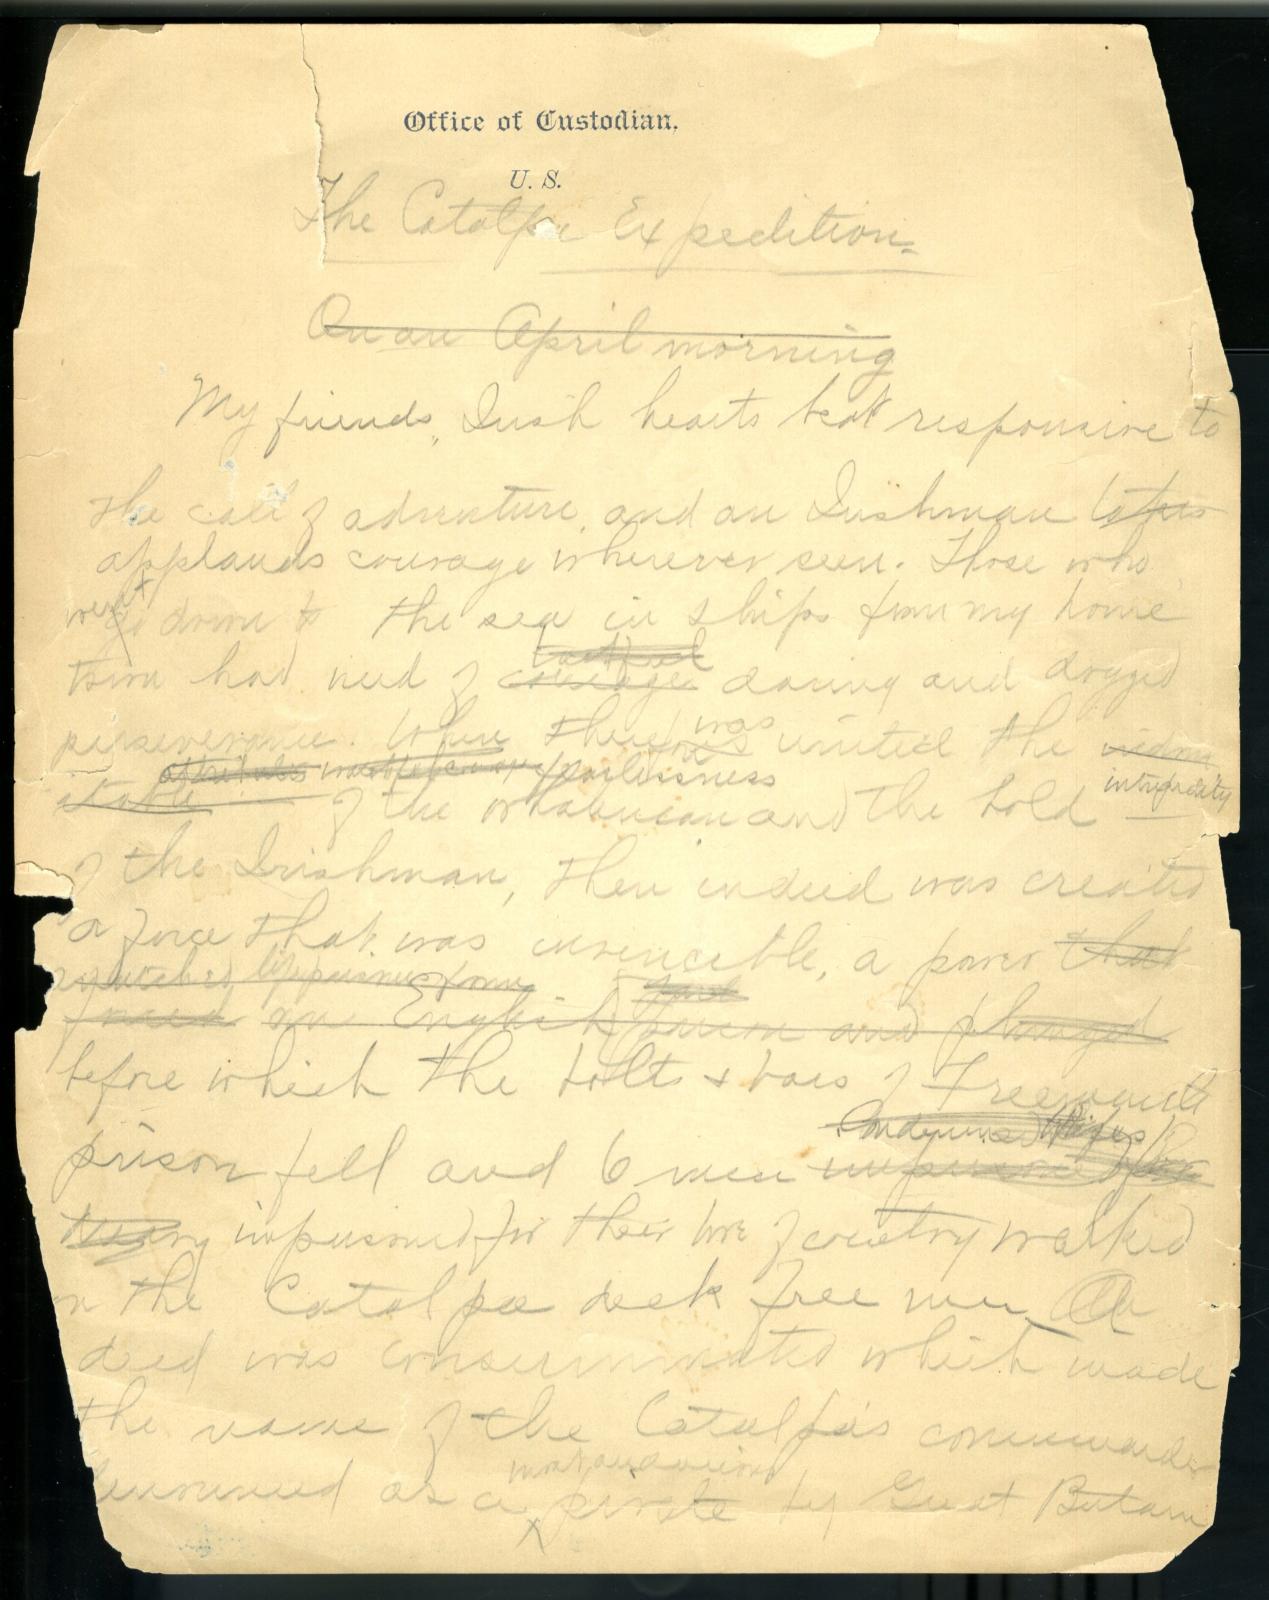 Office of Custodian.
U. S.
The Catalpa Expedition.
On an April morning
My friends, Irish hearts beat responsive to
the call of adventure, and an Irishman
applauds courage wherever seen. Those who
went
go down to the sea in ships from my home
tactful
town had need of courage daring and dogged
was
perseverance. When there was united the
fearlessness intrepidity
of the whaleman and the bold
of the Irishman, then indeed was created
a force that was invincible, a power that
an English prison and plunged
before which the bolts & bars of Freemantle
prison fell and 6 men
imprisoned for their love of country walked
on the Catalpa deck free men. A
deed was consummated which made
the name of the Catalpa's commander
denounced as a pirate by Great Britain